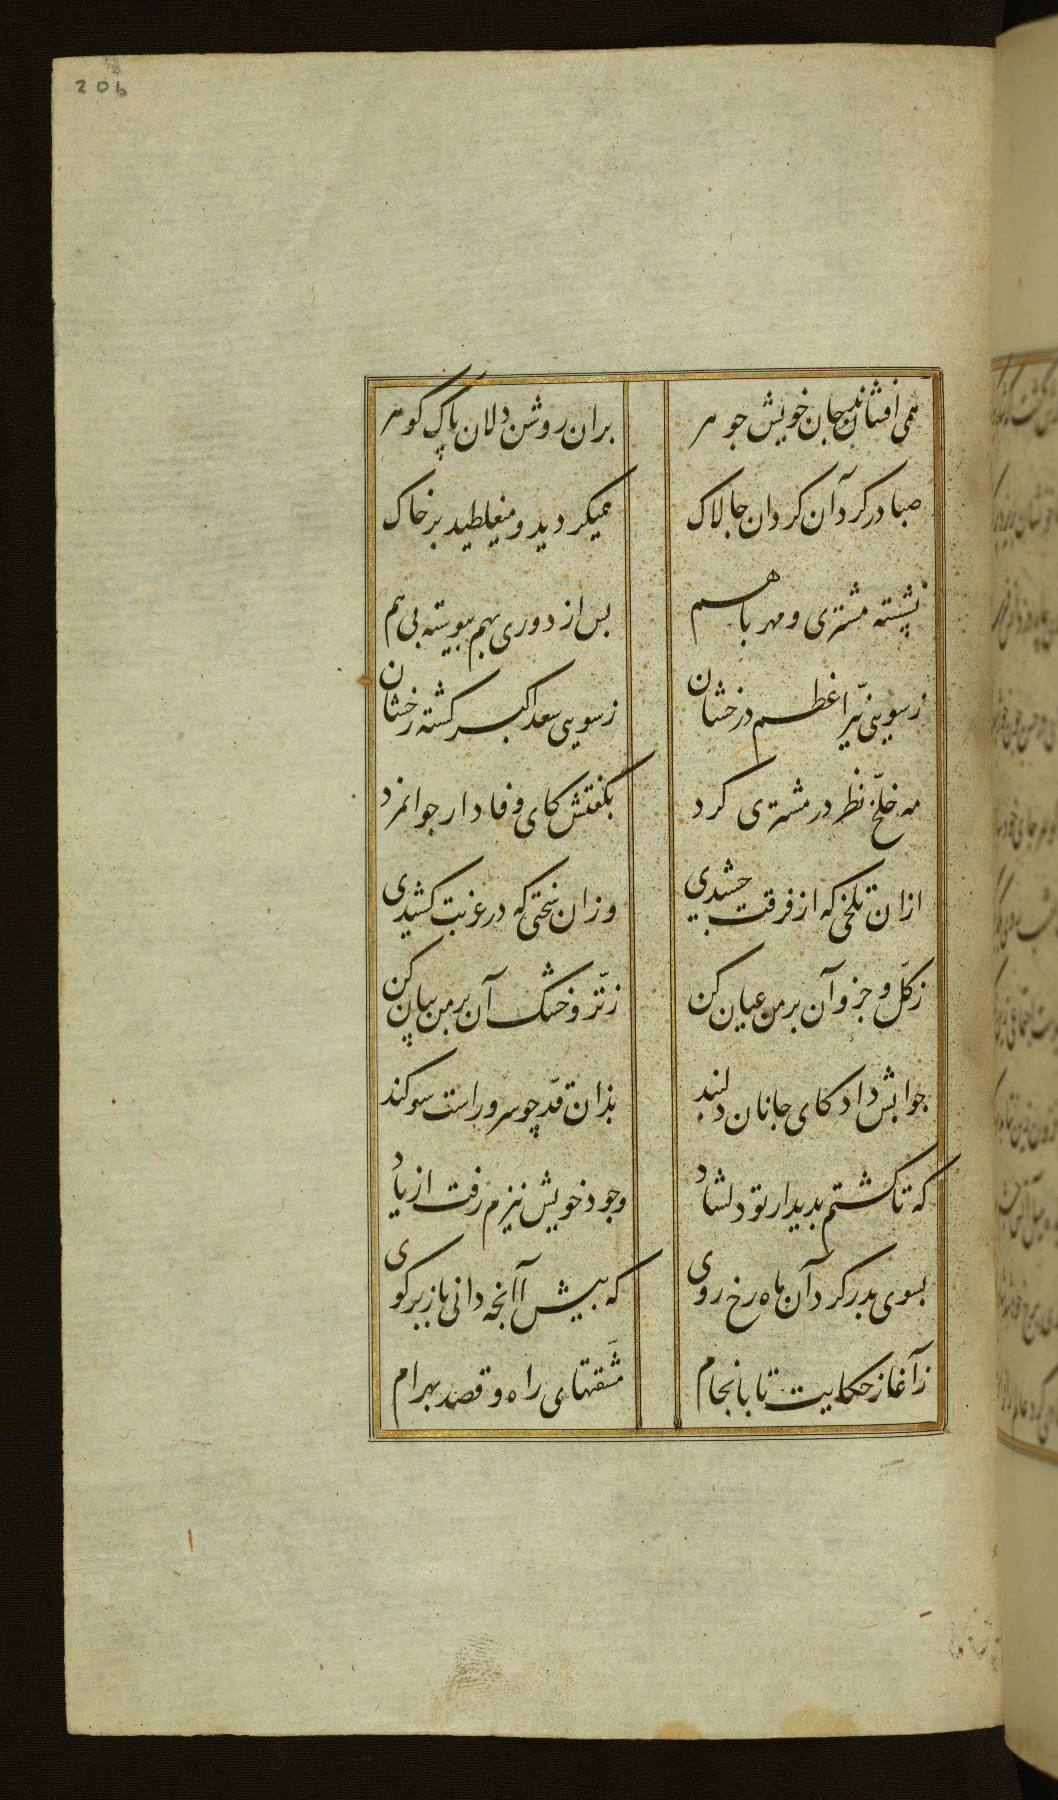 206
همی افشاند جان خویش جوهر
بران روشن دلان پاک کوهر
صبا در کرد آن کردان جالاک
همیکردید و میغلطید بر خاک
نشسته مشتری و مهر با هم
بس از دوری بهم بیوسته بی هم
زسویی نیّر اعظم درخشان
زسویی سعد اکبر کشته رخشان
مه خلّخ نظر در مشتری کرد
بکفتش کای وفادار جوانمرد
ازان تلخی که از فرقت جشیدی
وزان سختی که در غربت کشیدی
زکلّ و جزو آن بر من عیان کن
زتّر و خشک آن بر من بیان کن
جوابش داد کای جانان دلبند
بذان قدّ چو سرو راست سوکند
که تا کشتم بدیدار تو دلشاد
وجود خویش نیزم رفت از یاد
بسوی بدر کرد آن ماه رخ روی
که بیش آ آنجه دانی باز برکوی
زآغاز حکایت تا بانجام
مشّقتهای راه و قصد بهرام